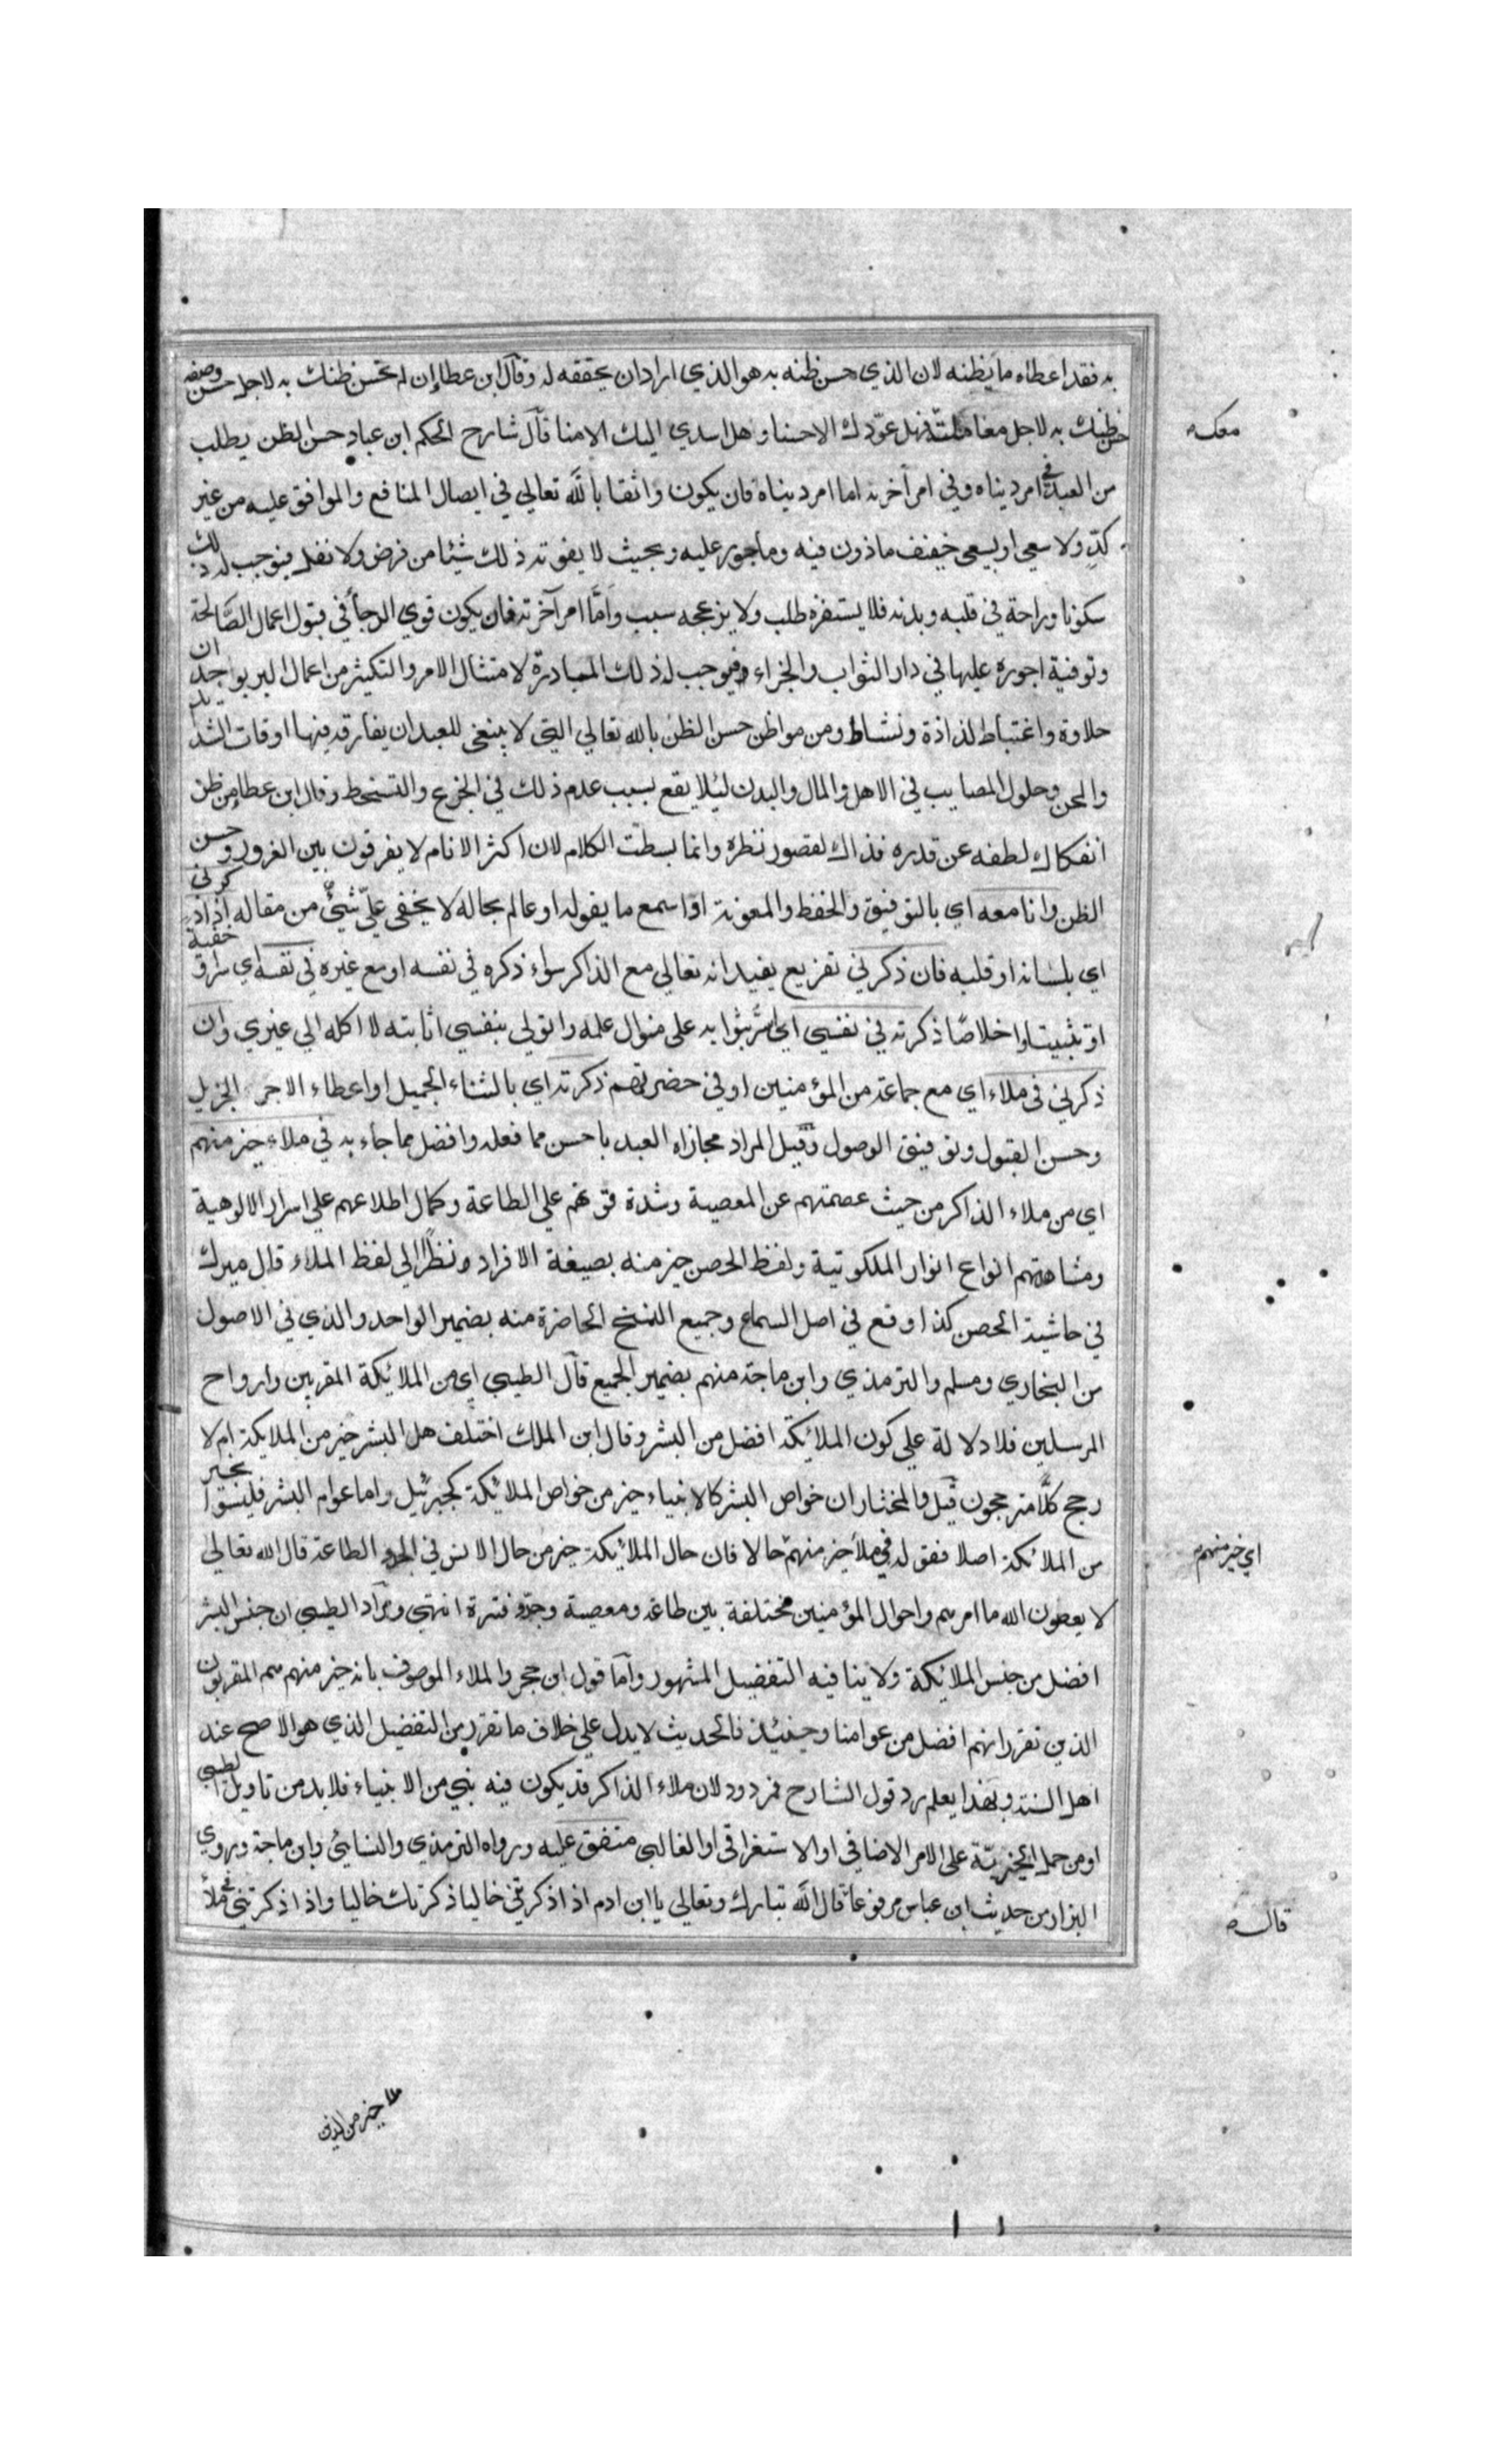 به فقد اعطاه ما يظنه لان الذي حسن ظنه به هو الذي اراد ان يحققه له وقال ابن عطا ان لم تحسن ظنك به لاجل حسن وصفه
حسن ظنك به لاجل معاملته فهل عوّدك الا حسنا وهل اسدي اليك الا مننا قال شارح الحكم ابن عباد حسن الظن يطلب
من العبد في امر ديناه وفي امر آخرته اما امر ديناه فان يكون واثقا بالله تعالي في ايصال المنافع والموافق عليه من غير
كدّ ولا سعي او بسعي خفيف ماذون فيه وماجور عليه وبحيث لا يفوته ذلك شيئا من فرض ولا نفل فيوجب له ذلك
سكونا وراحة في قلبه وبدنه فلا يستفزه طلب ولا يزعجه سبب وامّا امر آخرته فان يكون قوي الرجأ في قبول اعمال الصّالحة
وتوفية اجوره عليها في دار الثواب والجزاء فيوجب له ذلك المبادرة لامتثال الامر والتكثير من اعمال البر بوجدان
حلاوة واغتباط لذاذة ونشاط ومن مواطن حسن الظن بالله تعالي التي لا ينبغي للعبد ان يفارقه فيها اوقات الشدايد
والمحن وحلول المصايب في الاهل والمال والبدن ليئلا يقع بسبب عدم ذلك في الجزع والتسخط وقال ابن عطا من ظن
انفكاك لطفه عن قدره فذاك لقصور نظره وانما بسطت الكلام لان اكثر الانام لا يفرقون بين الغرور وحسن
الظن وانا معه اي بالتوفيق والحفظ والمعونة او اسمع ما يقوله او عالم بحاله لا يخفي عليّ شيئ من مقاله اذا ذكرني
اي بلسانه او قلبه فان ذكرني تفريع يفيد انه تعالي مع الذاكر سواء ذكره في نفسه او مع غيره في نفسه اي سرا وخفية
او تثبيتا واخلاصًا ذكرته في نفسي اي اسرّ بثوابه على منوال علمه واتولي بنفسي اثابته لا اكله الي غيري وان
ذكرني في ملاء اي مع جماعة من المؤمنين او في حضرتهم ذكرته اي بالثناء الجميل او اعطاء الاجر الجزيل
وحسن القبول وتوفيق الوصول وقيل المراد مجازاه العبد باحسن مما فعله وافضل مما جاء به في ملاء خير منهم
اي من ملاء الذاكر من حيث عصمتهم عن المعصية وشدة قوتهم علي الطاعة وكمال اطلاعهم علي اسرار الالوهية
ومشاهدتهم انواع انوار الملكوتية ولفظ الحصن خير منه بصيغة الافراد ونظرًا الى لفظ الملاء قال ميرك
في حاشية الحصن كذا وقع في اصل السماع وجميع النسخ الحاضرة منه بضمير الواحد والذي في الاصول
من البخاري ومسلم والترمذي وابن ماجة منهم بضمير الجمع قال الطيبي اي من الملائكة المقربين وارواح
المرسلين فلا دلالة علي كون الملائكة افضل من البشر وقال ابن الملك اختلف هل البشر خير من الملايكة ام لا
رجح كلًّا مترجحون قيل والمختار ان خواص البشر كالانبياء خير من خواص الملائكة كجبرئيل واما عوام البشر فليسوا بخير
من الملائكة اصلا فقوله في ملأ خير منهم حالا فان حال الملائكة خير من حال الانس في الجد الطاعة قال الله تعالي
لا يعصون الله ما امرهم واحوال المؤمنين مختلفة بين طاعة ومعصية وجدّ وفترة انتهي ومراد الطيبي ان جنس البشر
افضل من جنس الملائكة ولا ينافيه التفضيل المشهور وآما قول ابن حجر والملاء الموصوف بانه خير منهم هم المقربون
الذين تقرر انهم افضل من عوامنا وحينئذ فالحديث لا يدل علي خلاف ما تقرر من التفضيل الذي هو الاصح عند
اهل السنة وبهذا يعلم رد قول الشارح فمردود لان ملاء الذاكر قد يكون فيه نبي من الانبياء فلا بد من تاويل الطيبي
او من حمل الخيريّة على الامر الاضافي او الاستغراقي او الغالبي متفق عليه ورواه الترمذي والنسائي وابن ماجة وروي
البزار من حديث ابن عباس مرفوعا قال الله تبارك وتعالى يا ابن ادم اذا ذكرتني خاليا ذكرتك خاليا واذا ذكرتني في ملأ
معك
اي خير منهم
قال
ملا خير من الذين